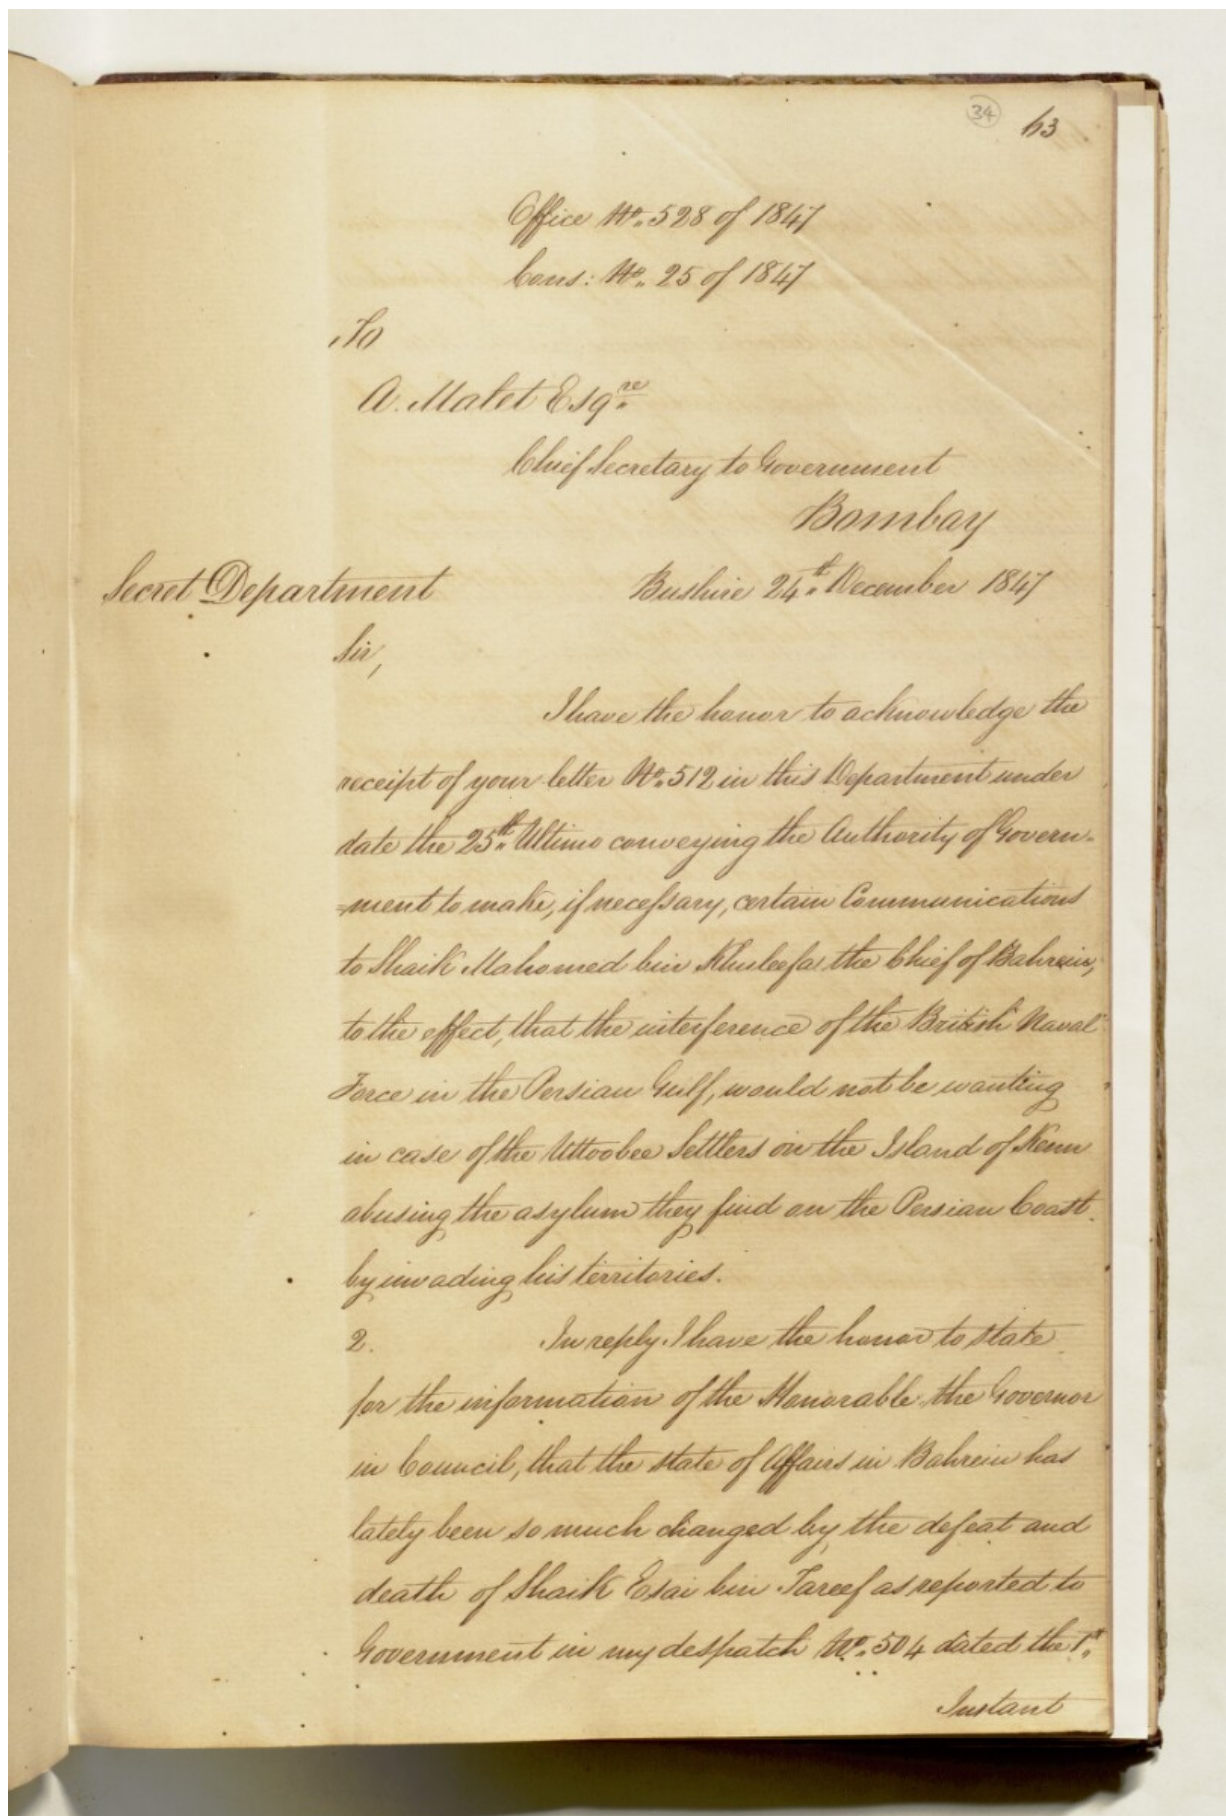 34 63
Office No. 528 of 1847
Cons: No. 25 of 1847
To
A. Malet Esqre
Chief Secretary to Government
Bombay
Secret Department Bushire 24th December 1847
Sir,
I have the honor to acknowledge the
receipt of your letter No. 512 in this Department under
date the 25th Ultimo conveying the Authority of Govern-
=ment to make, if necessary, certain Communications
to Shaik Mahomed bin Khuleefa the Chief of Bahrein,
to the effect, that the interference of the British Naval
Force in the Persian Gulf, would not be wanting
in case of the Uttoobee Settlers on the Island of Kenn
abusing the asylum they find on the Persian Coast
by invading his territories.
2. In reply I have the honor to state
for the information of the Honorable the Governor
in Council, that the state of Affairs in Bahrein has
lately been so much changed by the defeat and
death of Shaik Esai bin Tareef as reported to
Government in my despatch No. 504 dated the 1st
Instant